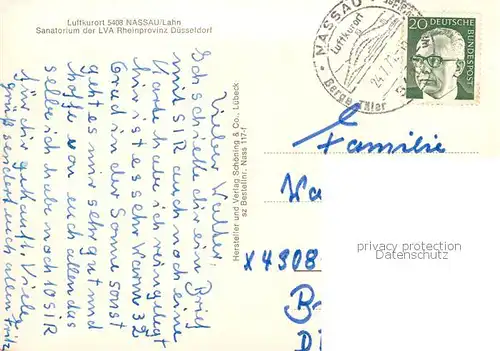 Luftkurort 5408 NASSAU/Lahn
Sanatorium der LVA Rheinprovinz Düsseldorf
NASSAU
Luftkurort
Berge Täler
20
DEUTSCHE
BUNDESPOST
Lieber Walter,
Ich schicke dir ein Brief
mit SIR auch noch eine
Karte habe ich reingelegt
hir ist es sehr Warm 32
Grad in der Sonne sonst
geht es mir sehr gut und
hoffe von euch allen das
selbe ich habe noch 10 SIR
für dir gekauft. Viele
grüße sendet euch allen Fritz
Hersteller und Verlag Schöning & Co., Lübeck
sz Bestellnr. Nass 117-f
Familie
Wa
X 4308
privacy protection
Datenschutz